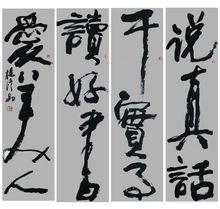 说真話
干實事
讀好書
愛美人